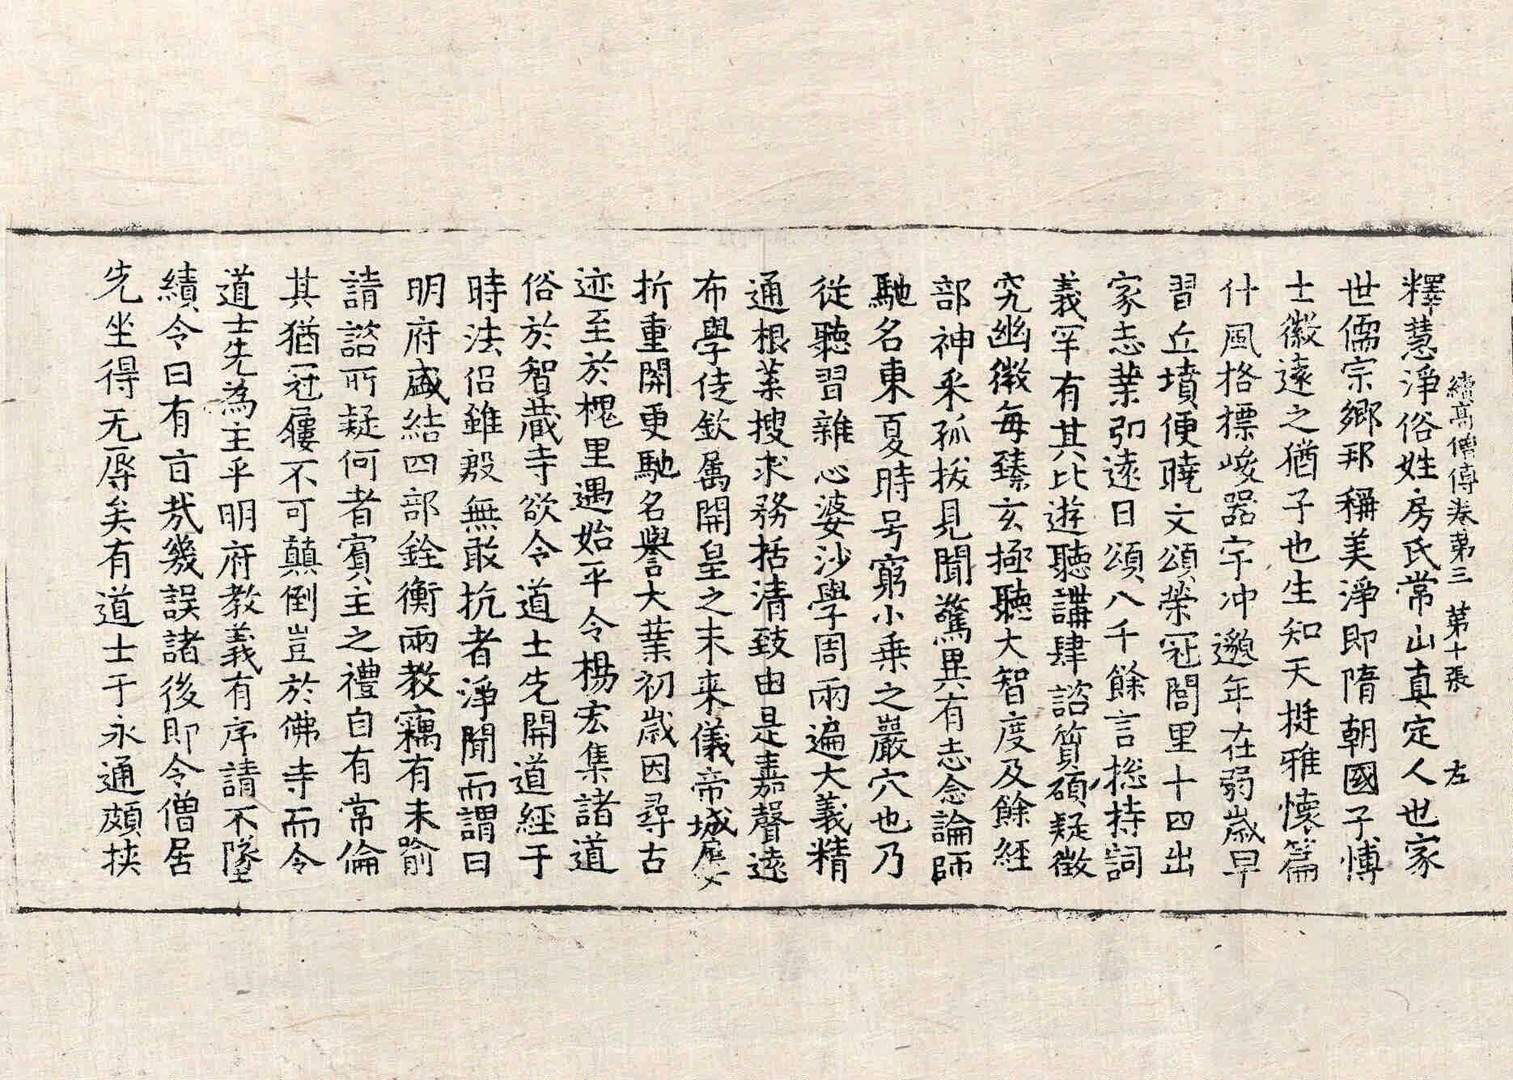 續高僧傳卷第三 第十張 左
釋慧淨俗姓房氏常山真定人也家
世儒宗鄉邦稱美淨即隋朝國子博
士徽遠之猶子也生知天挺雅懷篇
什風格標峻器宇沖邈年在弱歲早
習丘墳便曉文頌榮冠閭里十四出
家志業弘遠日頌八千餘言捴持詞
義罕有其比遊聽講肆諮質碩疑徵
究幽微每臻玄極聽大智度及餘經
部神采孤拔見聞驚異有志念論師
馳名東夏時号窮小乗之巖穴也乃
從聽習雜心婆沙學周兩遍大義精
通根葉搜求務括清致由是嘉聲遠
布學徒欽屬開皇之末来儀帝城屢
折重關更馳名譽大業初歲因尋古
迹至於槐里遇始平令楊宏集諸道
俗於智藏寺欲令道士先開道經于
時法侶雖殷無敢抗者淨聞而謂曰
明府盛結四部銓衡兩教竊有未喻
請諮所疑何者賓主之禮自有常倫
其猶冠屨不可顛倒豈於佛寺而令
道士先為主乎明府教義有序請不墜
績令曰有言哉幾誤諸後即令僧居
先坐得无辱矣有道士于永通頗挾